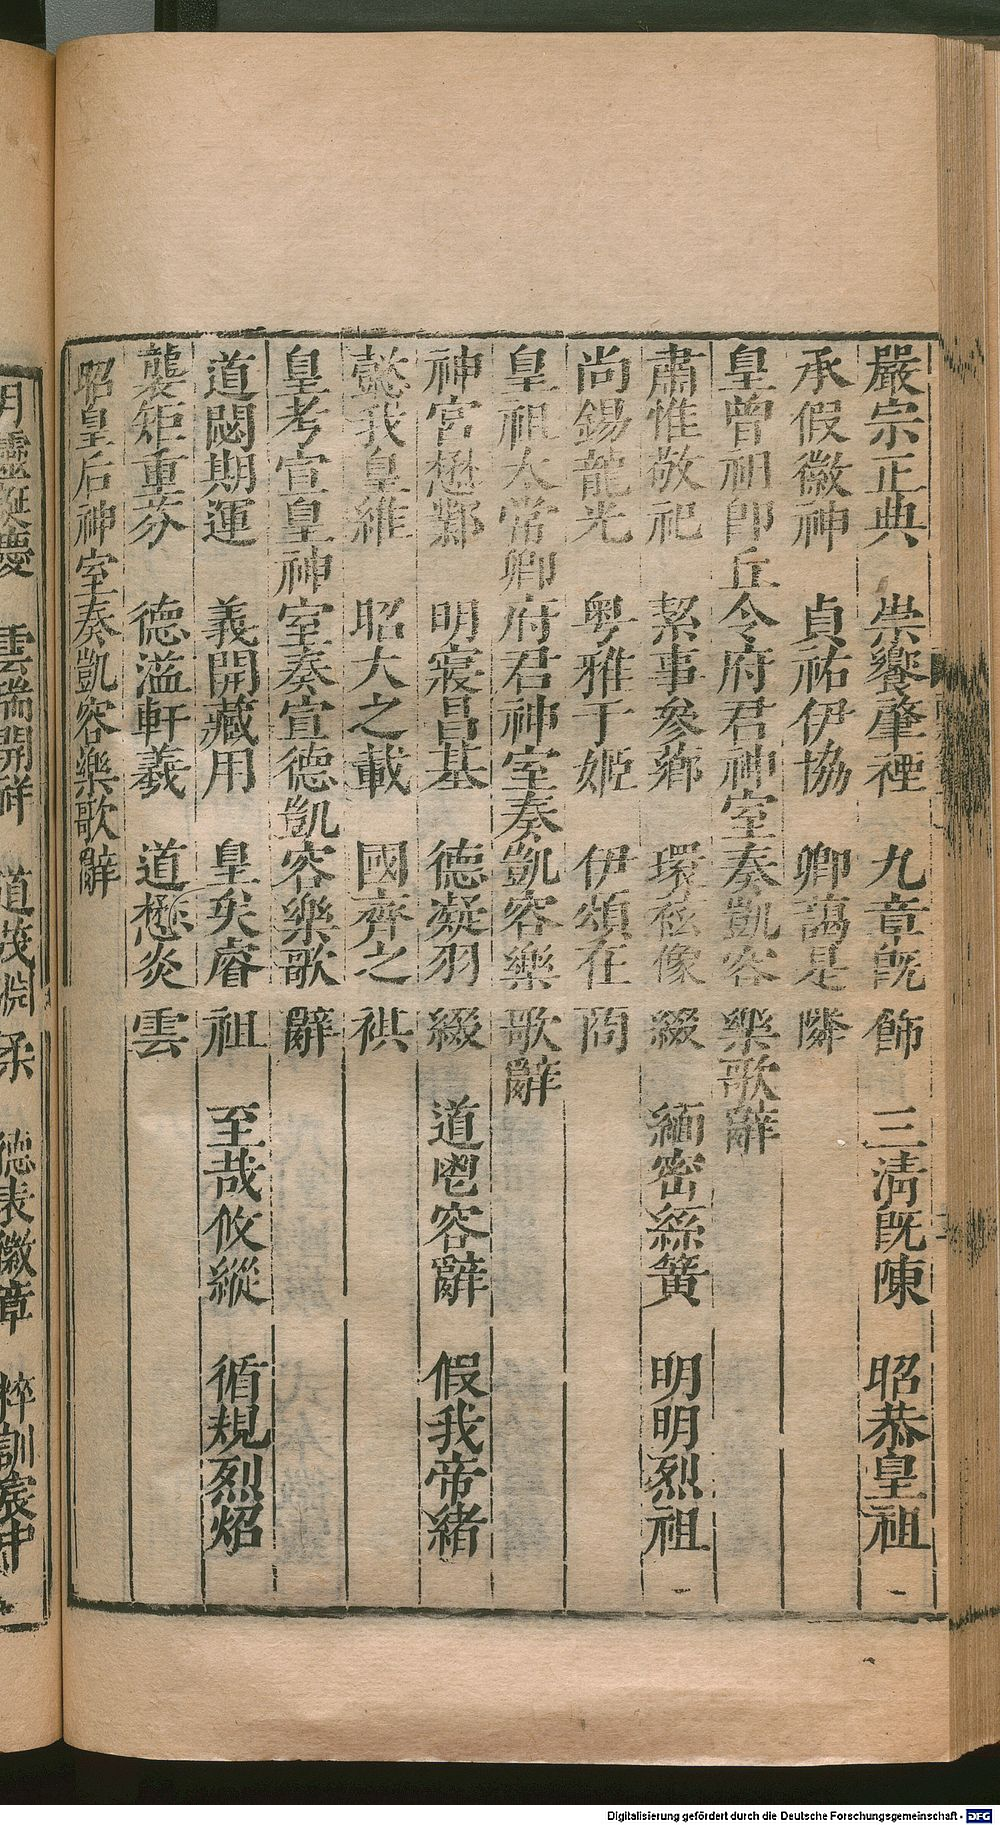 嚴宗正典　崇饗肇禋　九章旣飾　三淸旣陳　昭恭皇祖
承假徽神　貞祐伊協　卿藹是隣
皇曾祖卽丘令府君神室奏凱容樂歌辭
肅惟敬祀　絜事參薌　環袨像綴　緬密絲簧　明明烈祖
尚錫龍光　粤雅于姬　伊頌在商
皇祖太常卿府君神室奏凱容樂歌辭
神宮懋鄴　明寢昌基　德凝羽綴　道鬯容辭　假我帝緒
懿我皇維　昭大之載　國齊之祺
皇考宣皇神室奏宣德凱容樂歌辭
道閟期運　義開藏用　皇矣睿祖　至哉攸縱　循規烈炤
襲矩重芬　德溢軒羲　道懋炎雲
昭皇后神室奏凱容樂歌辭
月靈誕慶　雲瑞開祥　道茂淵柔　德表徽章　粹訓宸中
Digitalisierung gefördert durch die Deutsche Forschungsgemeinschaft - DFG